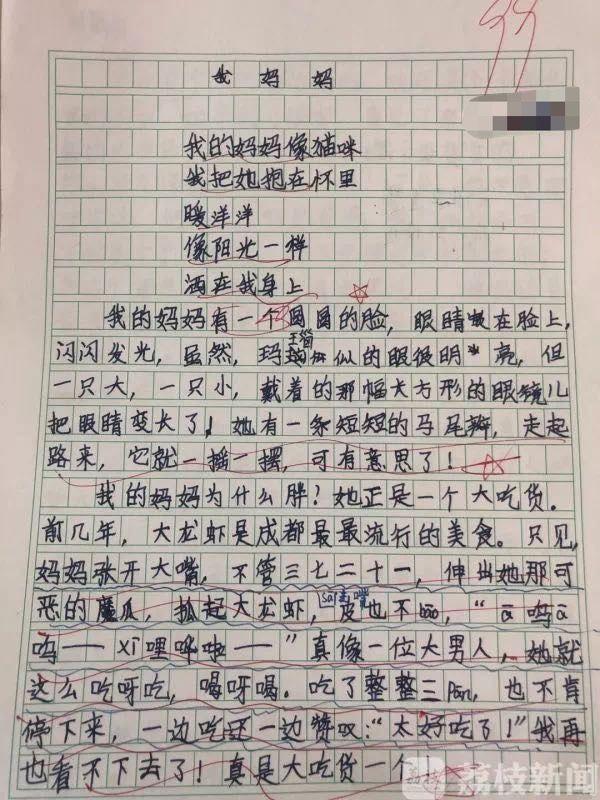 99
我妈妈
我的妈妈像猫咪
我把她抱在怀里
暖洋洋
像阳光一样
洒在我身上
我的妈妈有一个圆圆的脸，眼睛嵌在脸上，
闪闪发光，虽然，玛瑙似的眼很明亮，但
一只大，一只小，戴着的那幅大方形的眼镜儿
把眼睛变长了！她有一条短短的马尾辫，走起
路来，它就一摇一摆，可有意思了！
我的妈妈为什么胖？她正是一个大吃货。
前几年，大龙虾是成都最最流行的美食。只见，
妈妈张开大嘴，不管三七二十一，伸出她那可
恶的魔爪，抓起大龙虾，皮也不bāo，“ā呜ā
呜——xī哩哗啦——”真像一位大男人，她就
这么吃呀吃，喝呀喝。吃了整整三pán，也不肯
停下来，一边吃还一边赞叹：“太好吃了！”我再
也看不下去了！真是大吃货一个
荔枝新闻